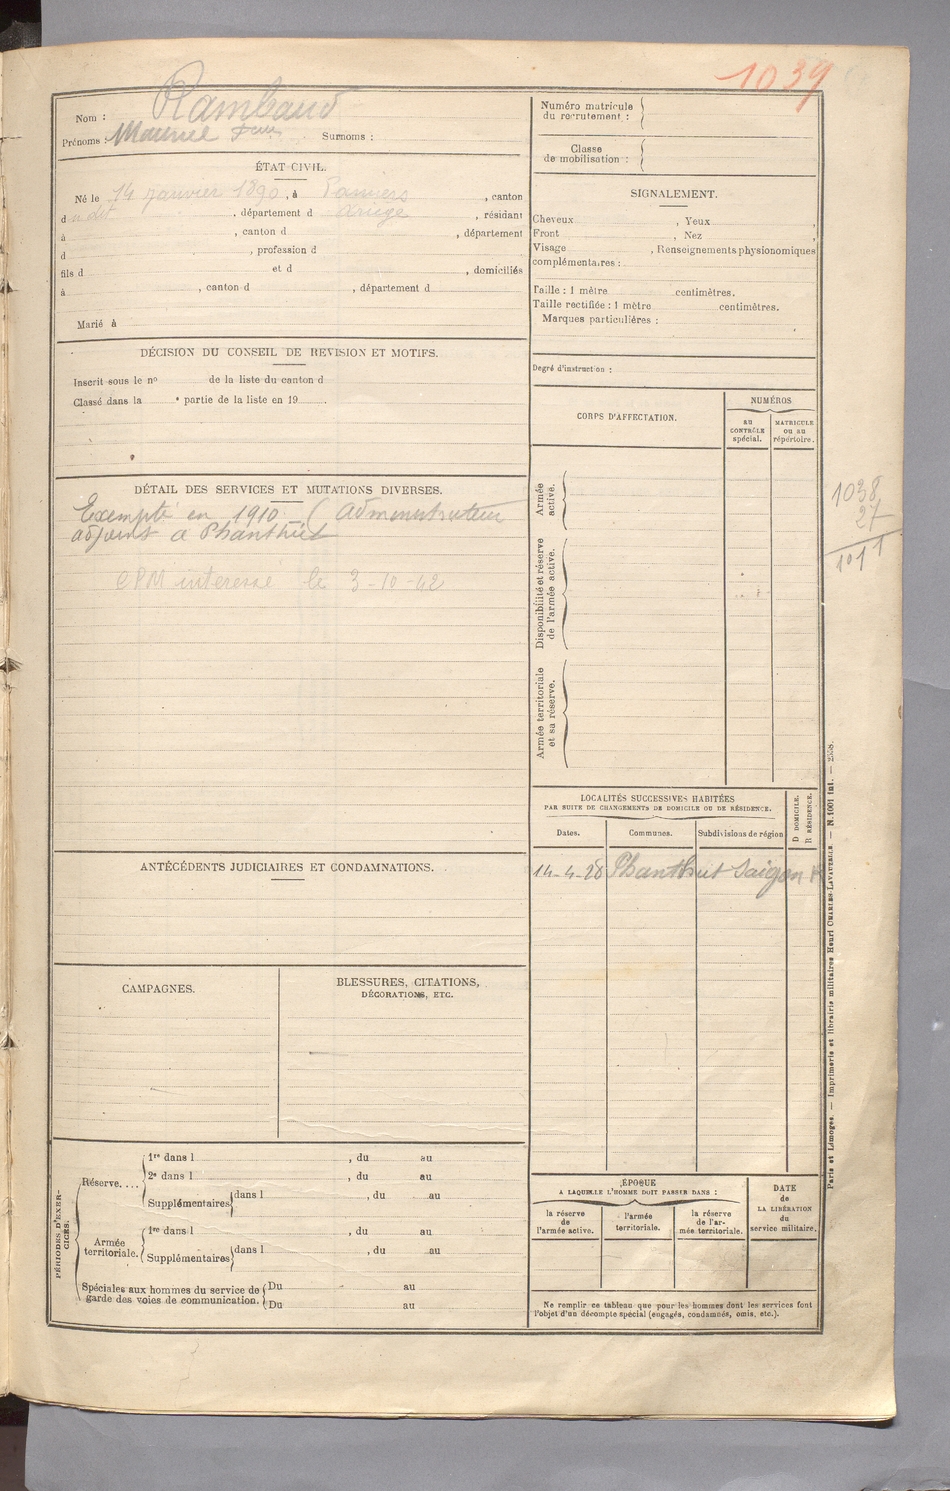 1039
Nom : Rambaud
Prénoms : Maurice Surnoms :
ÉTAT CIVIL.
Né le 14 janvier 1890, à Pamiers, canton
d udit, département d Ariège, résidant
à , canton d , département
d , profession d
fils d et d , domiciliés
à , canton d , département d
Marié à
DÉCISION DU CONSEIL DE REVISION ET MOTIFS.
Inscrit sous le no de la liste du canton d
Classé dans la e partie de la liste en 19 .
DÉTAIL DES SERVICES ET MUTATIONS DIVERSES.
Exempté en 1910 (Administrateur
adjoint à Phanthiêt
CPM intéressé le 3-10-42
ANTÉCÉDENTS JUDICIAIRES ET CONDAMNATIONS.
CAMPAGNES.
BLESSURES, CITATIONS,
DÉCORATIONS, ETC.
PÉRIODES D'EXER-
CICES.
Réserve. ...
1re dans l , du au
2e dans l , du au
Supplémentaires dans l , du au
Armée
territoriale.
1re dans l , du au
Supplémentaires dans l , du au
Spéciales aux hommes du service de
garde des voies de communication.
Du au
Du au
Numéro matricule
du recrutement :
Classe
de mobilisation :
SIGNALEMENT.
Cheveux , Yeux ,
Front , Nez ,
Visage , Renseignements physionomiques
complémentaires :
Taille : 1 mètre centimètres.
Taille rectifiée : 1 mètre centimètres.
Marques particulières :
Degré d'instruction :
CORPS D'AFFECTATION.
NUMÉROS
au
CONTRÔLE
spécial.
MATRICULE
ou au
répertoire.
Armée
active.
Disponibilité et réserve
de l'armée active.
Armée territoriale
et sa réserve.
1038
27
1011
LOCALITÉS SUCCESSIVES HABITÉES
PAR SUITE DE CHANGEMENTS DE DOMICILE OU DE RÉSIDENCE.
D DOMICILE.
R RÉSIDENCE.
Dates. Communes. Subdivisions de région
14-4-28 Phanthiet Saigon R
ÉPOQUE
A LAQUELLE L'HOMME DOIT PASSER DANS :
la réserve
de
l'armée active.
l'armée
territoriale.
la réserve
de l'ar-
mée territoriale.
DATE
de
LA LIBÉRATION
du
service militaire.
Ne remplir ce tableau que pour les hommes dont les services font
l'objet d'un décompte spécial (engagés, condamnés, omis, etc.).
Paris et Limoges. — Imprimerie et librairie militaires Henri CHARLES-LAVAUZELLE. — N. 1001 int. — 2538.